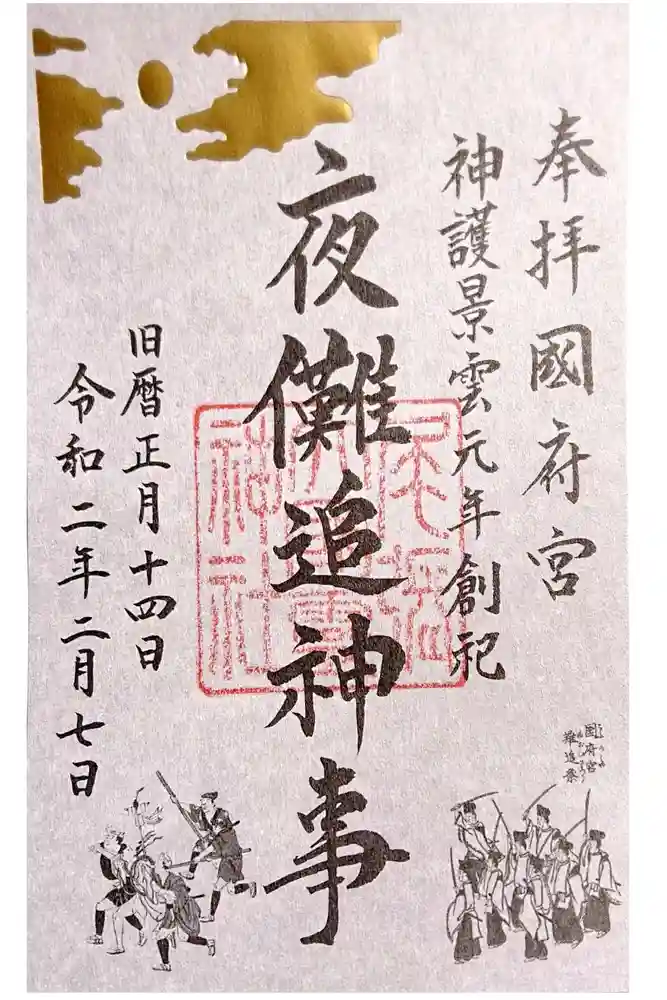 奉拝 國府宮
神護景雲元年創祀
夜儺追神事
旧暦正月十四日
令和二年二月七日
国府宮
難追祭